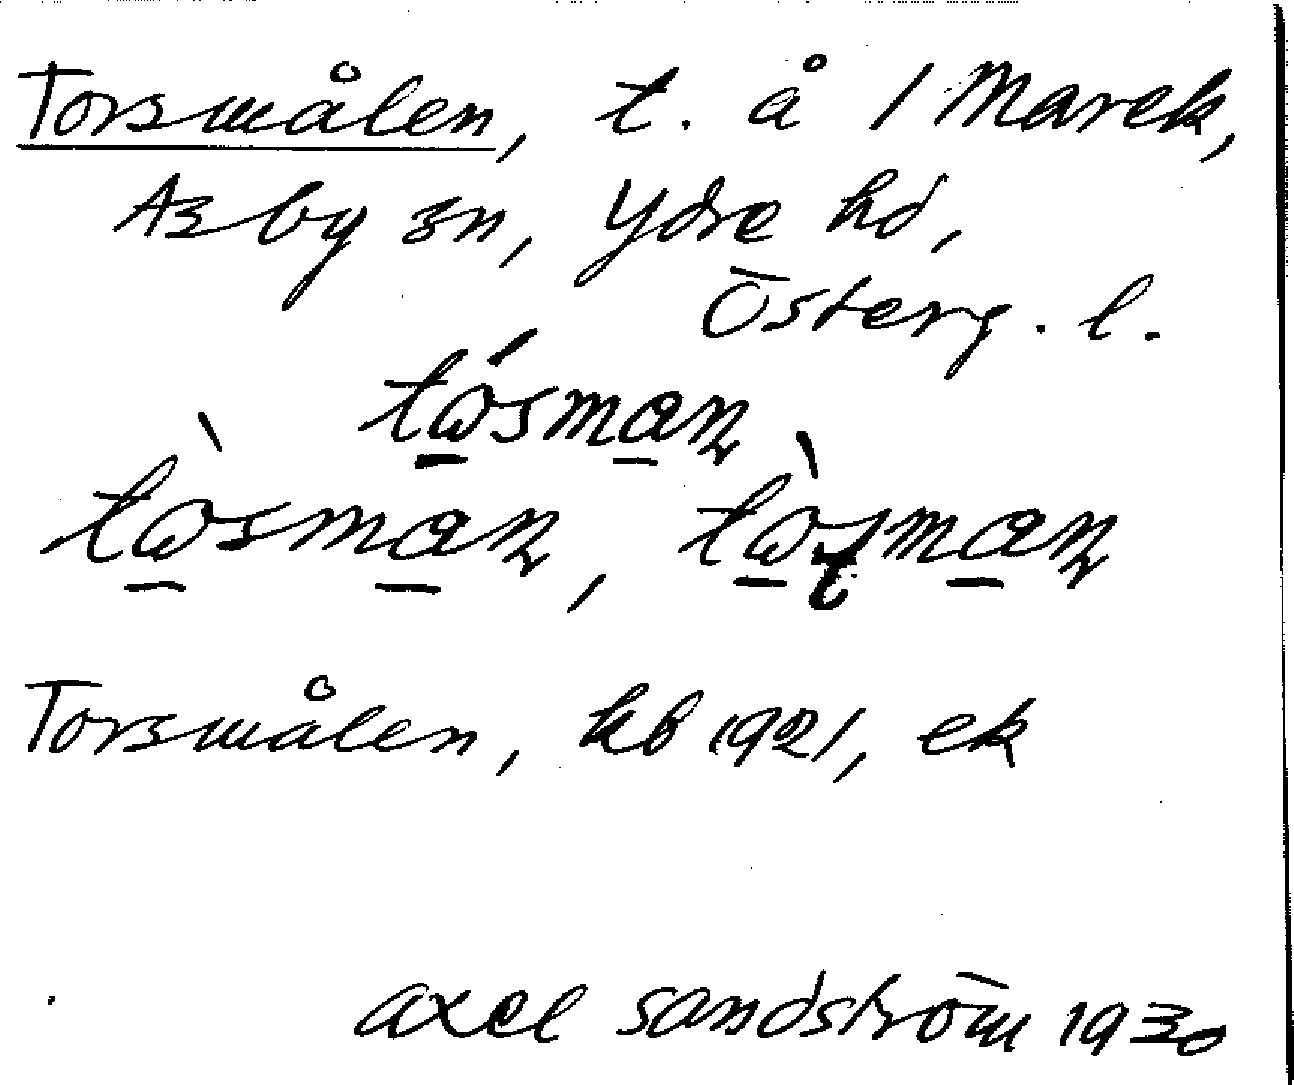 Torsmålen, t. å 1 Marek,
Asby sn, Ydre hd,
Österg. l.
Torsmålen, kb 1921, ek
axel sandström 1930